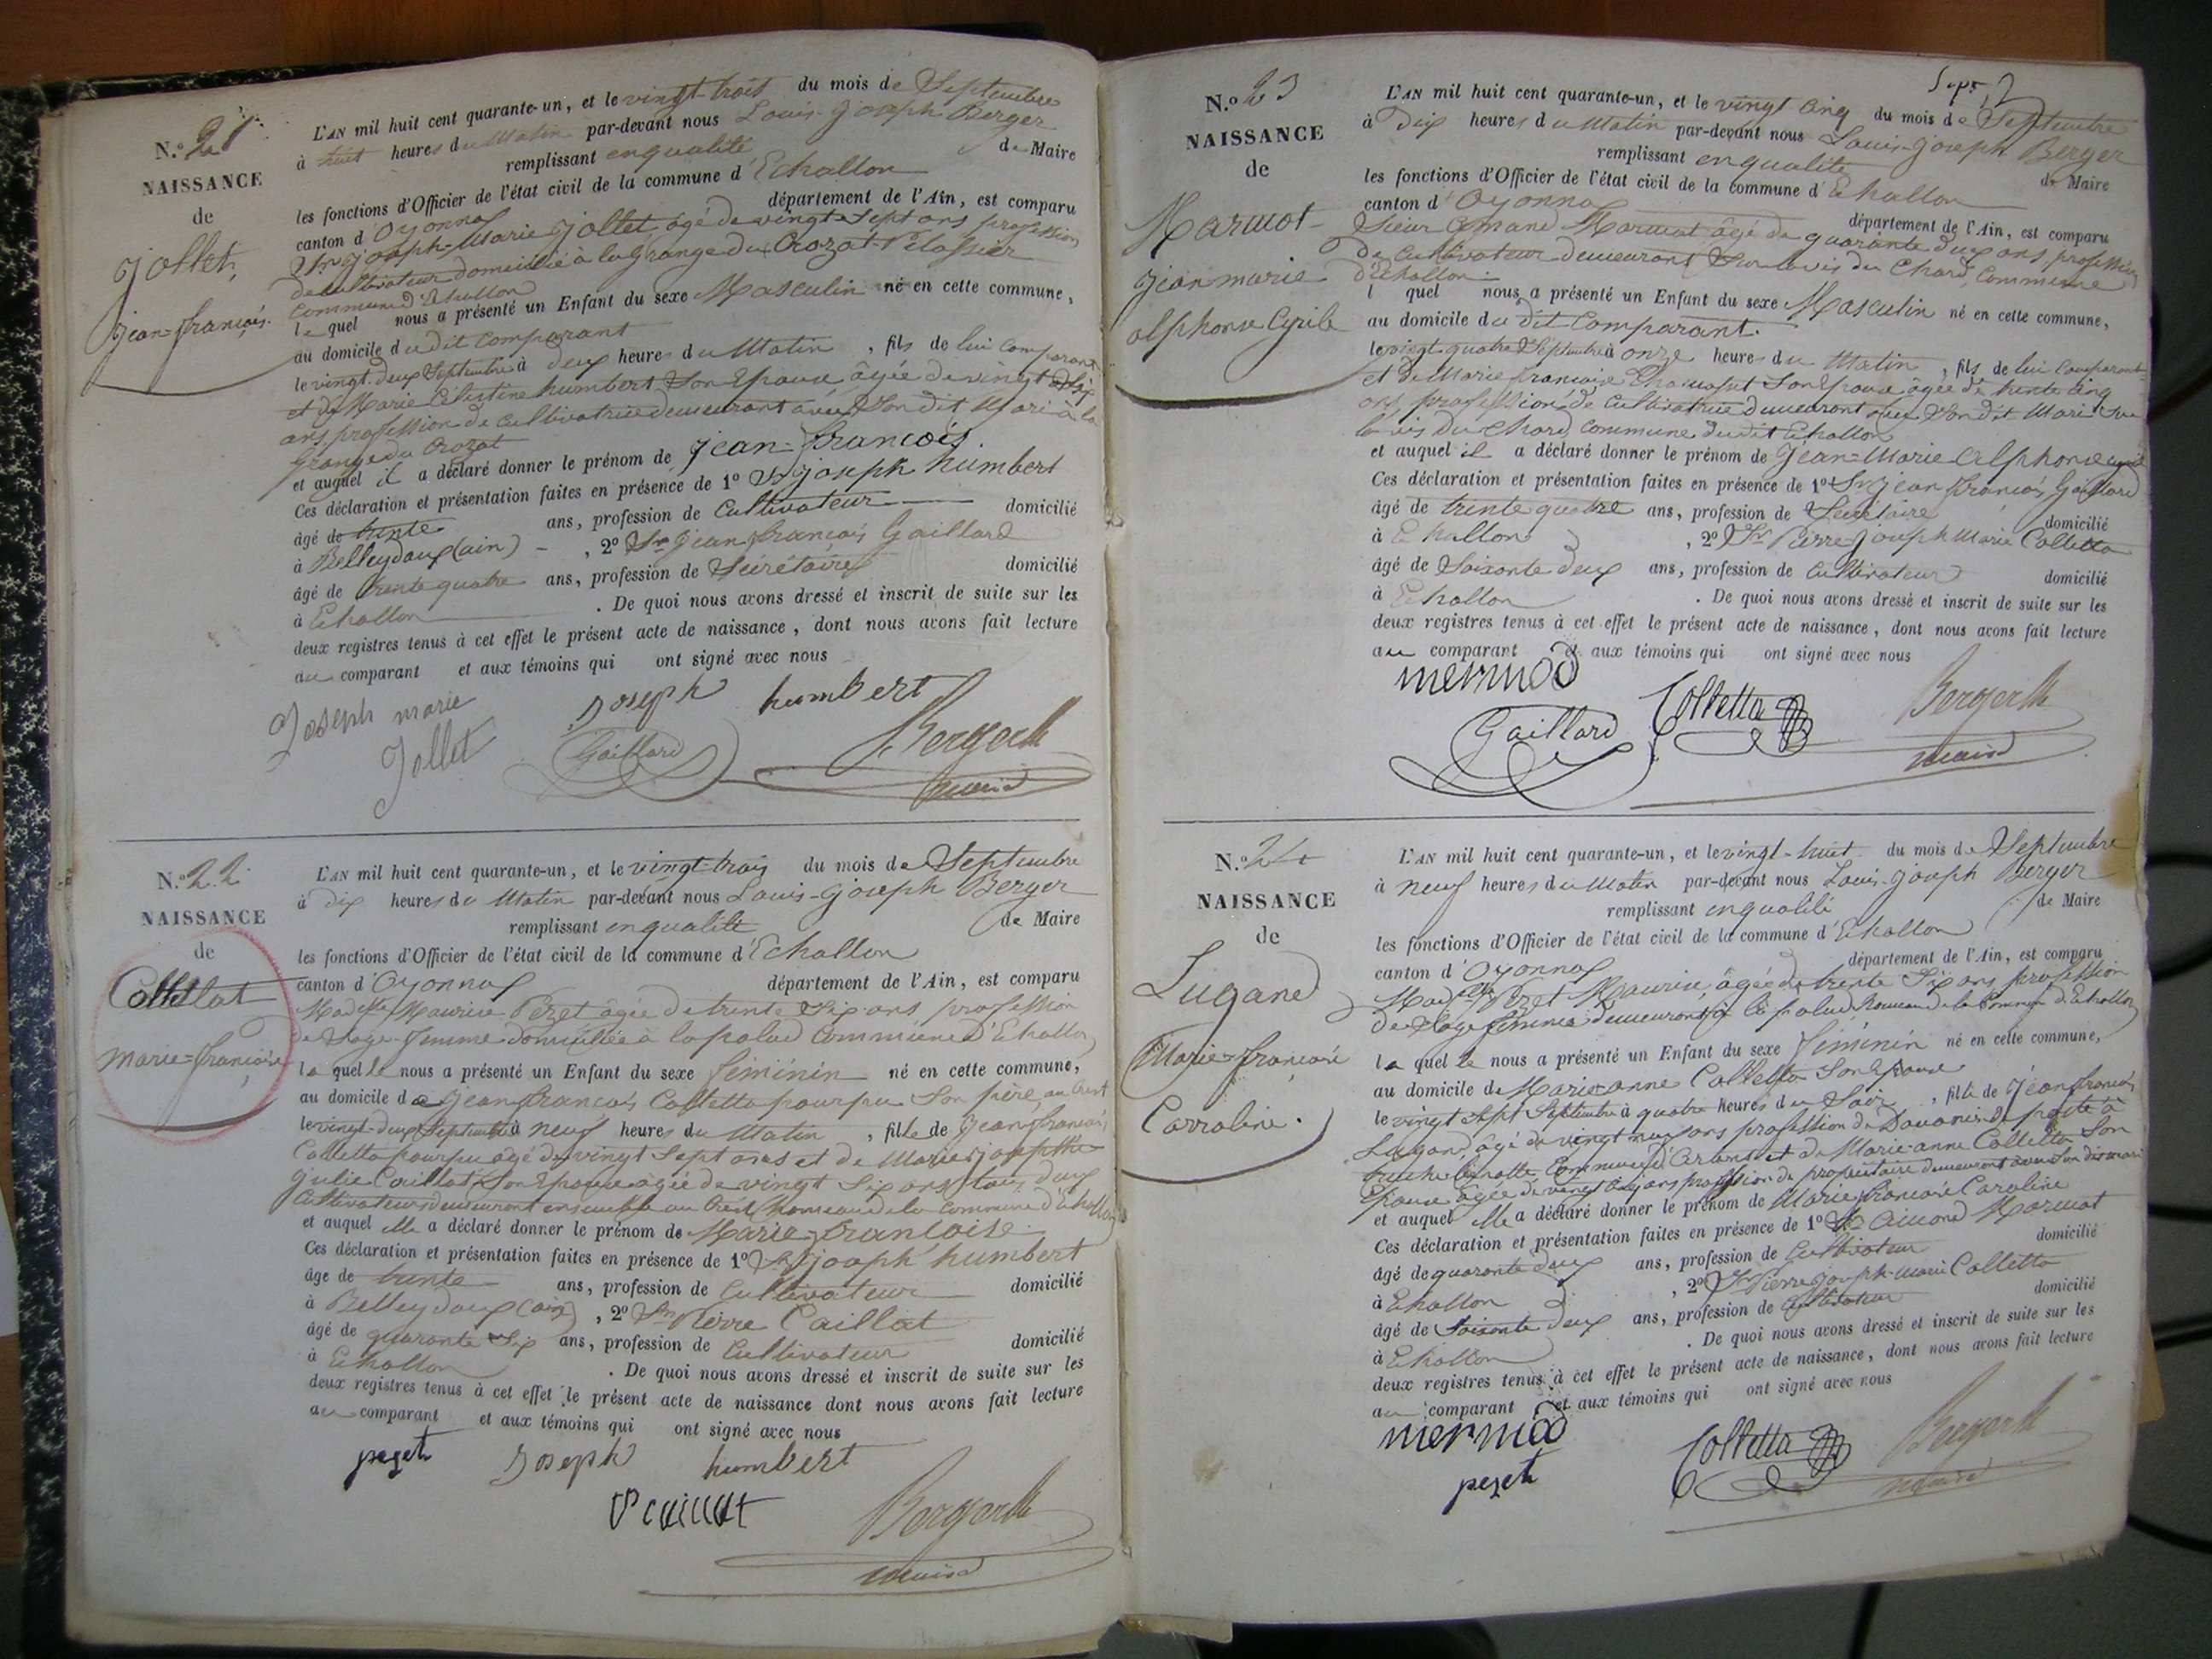 N.º 21
NAISSANCE
de
Jollet,
Jean=françois.
L'AN mil huit cent quarante-un, et le vingt-trois du mois de Septembre
à huit heures du Matin par-devant nous Louis-Joseph Berger
remplissant en qualité de Maire
les fonctions d'Officier de l'état civil de la commune d'Echallon
canton d'Oyonnas département de l'Ain, est comparu
Sr. Joseph-Marie Jollet, âgé de vingt-Sept ans profession
de cultivateur domicilié à la Grange du Crozat Pelossier
commune d'Echallon
lequel nous a présenté un Enfant du sexe Masculin né en cette commune,
au domicile du dit comparant
le vingt-deux Septembre à deux heures du Matin, fils de lui Comparant
et de Marie Célestine humbert Son Epouse âgée de vingt Six
ans, profession de cultivatrice demeurant avec Son dit Mari à la
Grange du Crozat
et auquel il a déclaré donner le prénom de Jean=françois.
Ces déclaration et présentation faites en présence de 1º Sr. Joseph humbert
âgé de trente ans, profession de Cultivateur domicilié
à Belleydoux (ain) , 2º Sr. Jean françois Gaillard
âgé de trente quatre ans, profession de Sécrétaire domicilié
à Echallon . De quoi nous avons dressé et inscrit de suite sur les
deux registres tenus à cet effet le présent acte de naissance, dont nous avons fait lecture
au comparant et aux témoins qui ont signé avec nous
Joseph marie Joseph humbert
Jollet Gaillard Berger
maire
N.º 22
NAISSANCE
de
Collettat
Marie=françoise
L'AN mil huit cent quarante-un, et le vingt-trois du mois de Septembre
à dix heures du Matin par-devant nous Louis-Joseph Berger
remplissant en qualité de Maire
les fonctions d'Officier de l'état civil de la commune d'Echallon
canton d'Oyonnas département de l'Ain, est comparu
Madelle Maurice Pezet âgée de trente Six ans profession
de Sage-femme domiciliée à lapalud Commune d'Echallon
laquelle nous a présenté un Enfant du sexe féminin né en cette commune,
au domicile de Jean françois Colletta pourpu Son père, au Crêt
le vingt-deux Septembre à neuf heures du Matin, fille de Jean françois
Colletta pourpu âgé de vingt Sept ans et de Marie-josephte
Julie Caillat Son Epouse âgée de vingt Six ans tous deux
Cultivateurs demeurant ensemble au Crêt hameau de la Commune d'Echallon
et auquel elle a déclaré donner le prénom de Marie=françoise.
Ces déclaration et présentation faites en présence de 1º Sr. Joseph humbert
âgé de trente ans, profession de Cultivateur domicilié
à Belleydoux (ain) , 2º Sr. Pierre Caillat
âgé de quarante Six ans, profession de Cultivateur domicilié
à Echallon . De quoi nous avons dressé et inscrit de suite sur les
deux registres tenus à cet effet le présent acte de naissance dont nous avons fait lecture
au comparant et aux témoins qui ont signé avec nous
pezet Joseph humbert
P caillat Berger
maire
Sepre
N.º 23
NAISSANCE
de
Marmot
Jean marie
alphonse Cyrile
L'AN mil huit cent quarante-un, et le vingt cinq du mois de Septembre
à Dix heures du Matin par-devant nous Louis-Joseph Berger
remplissant en qualité de Maire
les fonctions d'Officier de l'état civil de la commune d'Echallon
canton d'Oyonnas département de l'Ain, est comparu
Sieur Amand Marmot âgé de quarante deux ans, profession
de Cultivateur demeurant Sur lavis du Chard, Commune
d'Echallon.
lequel nous a présenté un Enfant du sexe Masculin né en cette commune,
au domicile du dit Comparant.
le vingt quatre Septembre à onze heures du Matin, fils de lui Comparant
et de Marie françoise Son Epouse âgée de trente cinq
ans profession de Cultivatrice demeurant avec Son dit Mari Sur
lavis du Chard, commune dudit Echallon
et auquel il a déclaré donner le prénom de Jean=Marie Alphonse cyrile
Ces déclaration et présentation faites en présence de 1º Sr. Jean françois Gaillard
âgé de trente quatre ans, profession de Secrétaire domicilié
à Echallon , 2º Sr. Pierre Joseph Marie Colletta
âgé de Soixante deux ans, profession de Cultivateur domicilié
à Echallon . De quoi nous avons dressé et inscrit de suite sur les
deux registres tenus à cet effet le présent acte de naissance, dont nous avons fait lecture
au comparant et aux témoins qui ont signé avec nous
mermod
Gaillard Colletta Berger
maire
N.º 24
NAISSANCE
de
Lugand
Marie=françoise
Carroline.
L'AN mil huit cent quarante-un, et le vingt-huit du mois de Septembre
à neuf heures du Matin par-devant nous Louis-Joseph Berger
remplissant en qualité de Maire
les fonctions d'Officier de l'état civil de la commune d'Echallon
canton d'Oyonnas département de l'Ain, est comparu
Madelle Pezet Maurice, âgée de trente Six ans profession
de Sage femme demeurant à la palud hameau de la Commune d'Echallon
laquelle nous a présenté un Enfant du sexe féminin né en cette commune,
au domicile de Marie-anne Colletta Son Epouse
le vingt Sept Septembre à quatre heures du Soir, fille de Jean françois
Lugand, âgé de vingt neuf ans profession de Douanier de poste à
Commune d'Arans et de Marie-anne Colletta Son
Epouse âgée de vingt ans profession de propriétaire demeurant avec Son dit mari
et auquel elle a déclaré donner le prénom de Marie françoise Caroline
Ces déclaration et présentation faites en présence de 1º Sr. Amand Marmot
âgé de quarante deux ans, profession de Cultivateur domicilié
à Echallon , 2º Sr. Pierre Joseph-Marie Colletta
âgé de Soixante deux ans, profession de Cultivateur domicilié
à Echallon . De quoi nous avons dressé et inscrit de suite sur les
deux registres tenus à cet effet le présent acte de naissance, dont nous avons fait lecture
au comparant et aux témoins qui ont signé avec nous
mermod Colletta Berger
pezet maire